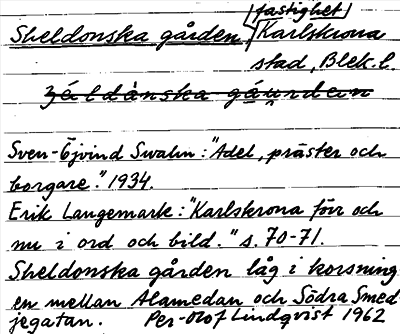 fastighet
Sheldonska gården, Karlskrona
stad, Blek. l.
Sven-Öjvind Swahn: "Adel, präster och
borgare." 1934.
Erik Langemark: "Karlskrona förr och
nu i ord och bild." s. 70-71.
Sheldonska gården låg i korsning
en mellan Alamedan och Södra Smed
jegatan. Per-Olof Lindqvist 1962